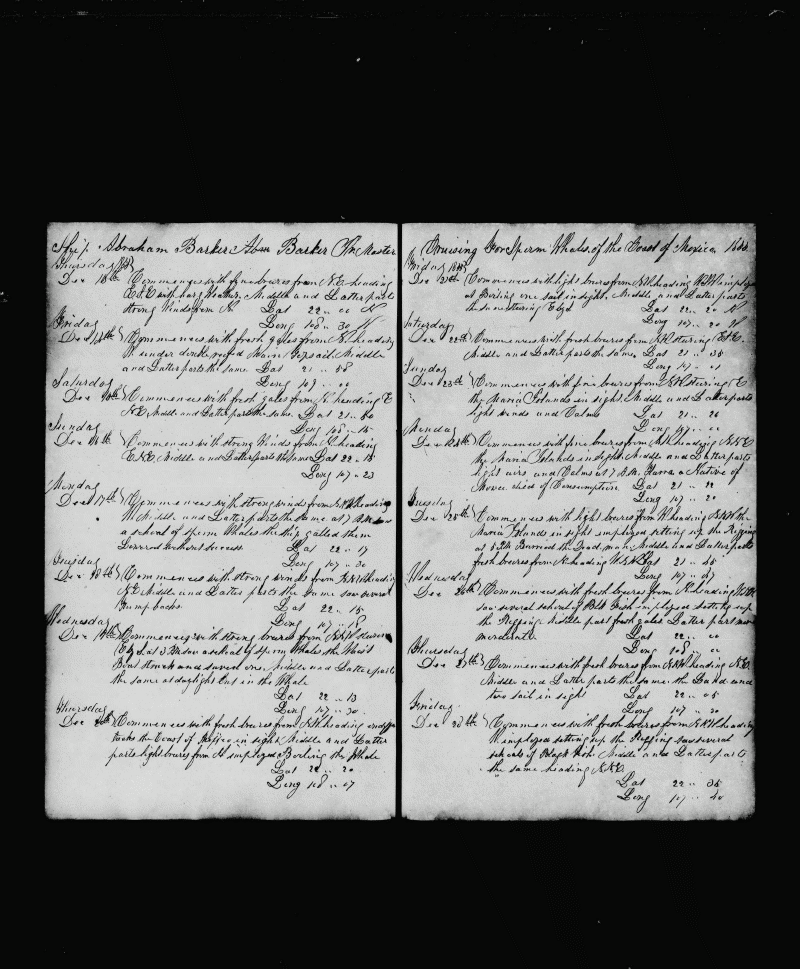 Ship Abraham Barker Abm Barker Master
Thursday
Dec 13th Commences with fine breeze from N.E. heading
with Weather, Middle and Latter parts
strong Winds from N Lat 22 .. 00 N
Long 108 .. 30 W
Friday
Dec 14th Commences with fresh gales from N. heading
under Main Topsail Middle
and Latter parts the same Lat 21 .. 58
Long 107 .. 00
Saturday
Dec Commences with fresh gales from N heading E
N.E. Middle and Latter parts the same. Lat 21 ..
Long 108 .. 15
Sunday
Dec Commences with strong Winds from N heading
E.N.E. Middle and Latter parts the same Lat 22 .. 15
Long 107 .. 23
Monday
Dec 17th Commences with strong winds from heading
Middle and Latter parts the same at 7 A.M. saw
a school of sperm Whales the ship
Lowered without success Lat 22 .. 17
Long 107 .. 30
Tuesday
Dec 18th Commences with strong winds from heading
N.E. Middle and Latter parts the same saw several
humpbacks Lat 22 .. 15
Long 107 .. 18
Wednesday
Dec 19th Commences with strong breeze from
at 3 PM saw a school of sperm Whales the Waist
Boat struck and saved one. Middle and Latter parts
the same at daylight Cut in the Whale
Lat 22 .. 13
Long 107 .. 30
Thursday
Dec 20th Commences with fresh breeze from heading
the Coast of Mexico in sight Middle and Latter
parts light breeze from N employed Boiling the Whale
Lat 22 .. 20
Long 108 .. 07
Cruising for Sperm Whales of the Coast of Mexico
Friday
Dec 21st Commences with light breeze from heading employed
at Boiling one sail in sight. Middle and Latter parts
the same steering Lat 22 .. 20 N
Long 107 .. 20 W
Saturday
Dec 22nd Commences with fresh breeze from steering
Middle and Latter parts the same. Lat 21 .. 35
Long 107 .. 01
Sunday
Dec 23rd Commences with fine breeze from steering E
the Maria Islands in sight. Middle and Latter parts
light winds and Calms Lat 21 .. 26
Long 107 .. 00
Monday
Dec 24th Commences with fine breeze from heading N.N.E.
the Maria Islands in sight Middle and Latter parts
light airs and Calms at 7 P.M. a Native of
died of Consumption Lat 21 ..
Long 107 .. 20
Tuesday
Dec 25th Commences with light breeze from heading the
Maria Islands in sight employed setting up the Rigging
at 5 PM Buried the Dead man Middle and Latter parts
fresh breeze from N heading Lat 21 .. 45
Long 107 .. 47
Wednesday
Dec 26th Commences with fresh breeze from N heading
saw several school of Black Fish employed setting up
the Rigging Middle part fresh gales Latter part more
moderate Lat 22 .. 00
Long 108 .. 00
Thursday
Dec 27th Commences with fresh breeze from heading N.E.
Middle and Latter parts the same the Land and
two sail in sight Lat 22 .. 05
Long 107 .. 20
Friday
Dec 28th Commences with fresh breeze from heading
employed setting up the Rigging saw several
schools of Black Fish Middle and Latter parts
the same heading N.N.E.
Lat 22 .. 35
Long 107 .. 40